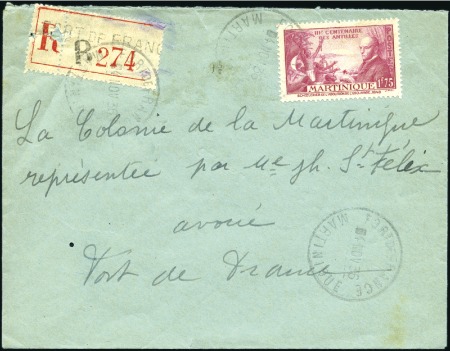 R R 274
FORT DE FRANCE
IIIe CENTENAIRE
DES ANTILLES
POSTES
MARTINIQUE
1F75
La Colonie de la Martinique
représentée par Me Jh. St Félix
avoué
Fort de France
FORT DE FRANCE
MARTINIQUE